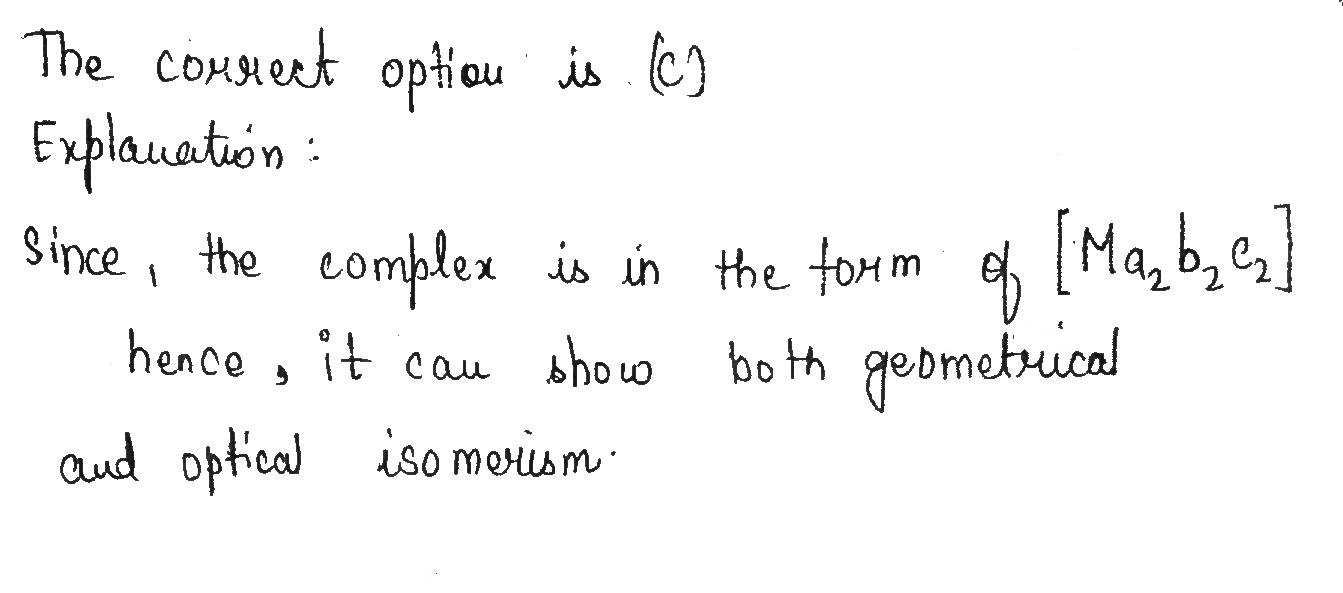 The correct option is (c)
Explanation :
Since, the complex is in the form of [Ma₂b₂c₂]
hence, it can show both geometrical
and optical isomerism.